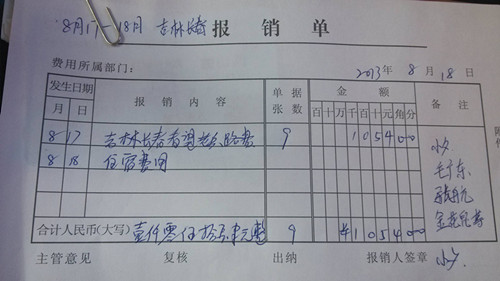 8月17-18月 吉林长春 报销单
费用所属部门: 2013年8月18日
发生日期 报销内容 单据张数 金额 备注
月 日 百 十 万 千 百 十 元 角 分
8 17 吉林长春看望 路费 9 1 0 5 4 0 0
8 18 住宿费用
合计人民币(大写) 壹仟零伍拾 元整 9 ¥ 1 0 5 4 0 0
主管意见 复核 出纳 报销人签章